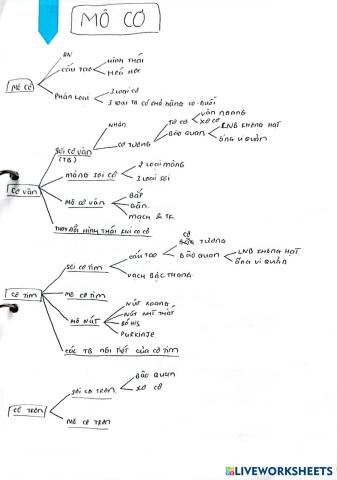 MÔ CƠ
ĐN
MÔ CƠ
CẤU TẠO
HÌNH THÁI
HOÁ HỌC
PHÂN LOẠI
3 LOẠI CƠ
3 LOẠI TB CÓ KHẢ NĂNG CO DUỖI
CƠ VÂN
SỢI CƠ VÂN
(TB)
NHÂN
CƠ TƯƠNG
TƠ CƠ
VÂN NGANG
XƠ CƠ
BÀO QUAN
LNB KHÔNG HẠT
ỐNG VI QUẢN
MÀNG SỢI CƠ
2 LOẠI MÀNG
2 LOẠI SỢI
MÔ CƠ VÂN
BẮP
GÂN
MẠCH & TK
THAY ĐỔI HÌNH THÁI KHI CO CƠ
CƠ TIM
SỢI CƠ TIM
CẤU TẠO
CƠ TƯƠNG
BÀO QUAN
LNB KHÔNG HẠT
ỐNG VI QUẢN
VẠCH BẬC THANG
MÔ CƠ TIM
MÔ NÚT
NÚT XOANG
NÚT NHĨ THẤT
BÓ HIS
PURKINJE
CÁC TB NỘI TIẾT CỦA CƠ TIM
CƠ TRƠN
SỢI CƠ TRƠN
BÀO QUAN
XƠ CƠ
MÔ CƠ TRƠN
LIVEWORKSHEETS